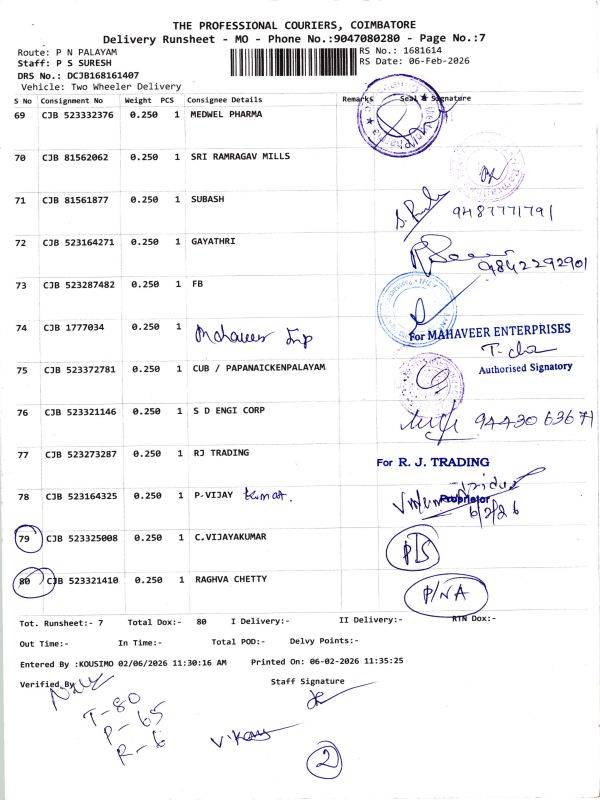 THE PROFESSIONAL COURIERS, COIMBATORE
Delivery Runsheet - MO - Phone No.:9047080280 - Page No.:7
Route: P N PALAYAM
RS No.: 1681614
Staff: P S SURESH
RS Date: 06-Feb-2026
DRS No.: DCJB168161407
Vehicle: Two Wheeler Delivery
S No Consignment No Weight PCS Consignee Details Remarks Seal & Signature
69 CJB 523332376 0.250 1 MEDWEL PHARMA
70 CJB 81562062 0.250 1 SRI RAMRAGAV MILLS
71 CJB 81561877 0.250 1 SUBASH
9487771791
72 CJB 523164271 0.250 1 GAYATHRI
9842292901
73 CJB 523287482 0.250 1 FB
74 CJB 1777034 0.250 1 Mahaveer Enp
For MAHAVEER ENTERPRISES
Authorised Signatory
75 CJB 523372781 0.250 1 CUB / PAPANAICKENPALAYAM
76 CJB 523321146 0.250 1 S D ENGI CORP
94430 63671
77 CJB 523273287 0.250 1 RJ TRADING
For R. J. TRADING
78 CJB 523164325 0.250 1 P-VIJAY Kumar.
Proprietor
6/2/26
79 CJB 523325008 0.250 1 C.VIJAYAKUMAR
P/S
80 CJB 523321410 0.250 1 RAGHVA CHETTY
P/NA
Tot. Runsheet:- 7 Total Dox:- 80 I Delivery:- II Delivery:- RTN Dox:-
Out Time:- In Time:- Total POD:- Delvy Points:-
Entered By :KOUSIMO 02/06/2026 11:30:16 AM Printed On: 06-02-2026 11:35:25
Verified By
Staff Signature
T-80
P-65
R-6
2